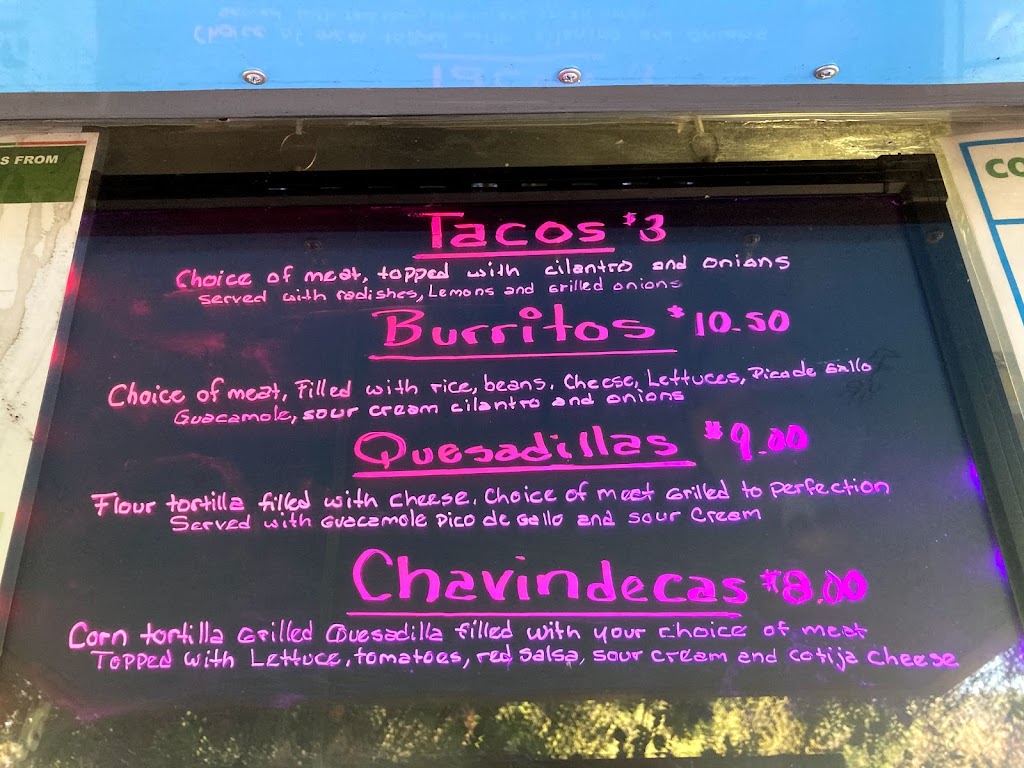 S FROM
CO
Tacos $3
Choice of meat, topped with cilantro and onions
served with radishes, Lemons and Grilled onions
Burritos $10.50
Choice of meat, Filled with rice, beans, Cheese, Lettuces, Pico de Gallo
Guacamole, sour cream cilantro and onions
Quesadillas $9.00
Flour tortilla filled with cheese, Choice of meet Grilled to Perfection
Served with Guacamole Pico de Gallo and sour Cream
Chavindecas $8.00
Corn tortilla Grilled Quesadilla filled with your choice of meat
Topped with Lettuce, tomatoes, red salsa, sour cream and cotija cheese